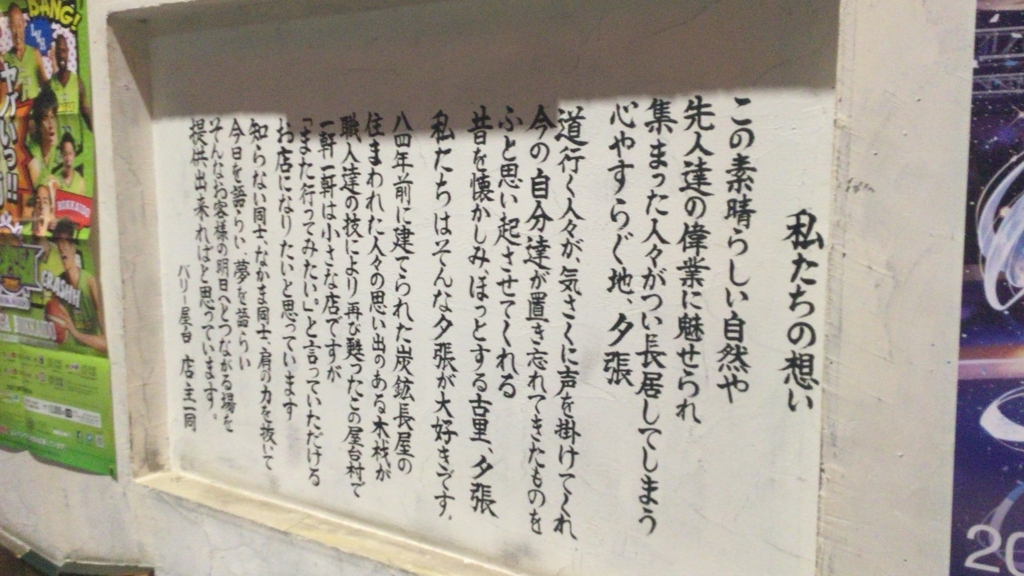 私たちの想い
この素晴らしい自然や
先人達の偉業に魅せられ
集まった人々がつい長居してしまう
心やすらぐ地、夕張
道行く人々が、気さくに声を掛けてくれ
今の自分達が置き忘れてきたものを
ふと思い起させてくれる
昔を懐かしみ、ほっとする古里、夕張
私たちはそんな夕張が大好きです。
八四年前に建てられた炭鉱長屋の
住まわれた人々の思い出のある木材が
職人達の技により再び甦ったこの屋台村で
一軒一軒は小さな店ですが
「また行ってみたい。」と言っていただける
お店になりたいと思っています
知らない同士、なかま同士、肩の力を抜いて
今日を語らい、夢を語らい
そんなお客様の明日へとつながる場を
提供出来ればと思っています。
バリー屋台 店主一同
BANG!
ヤバいっ!!
HOKKAIDO
CRASH!!
20